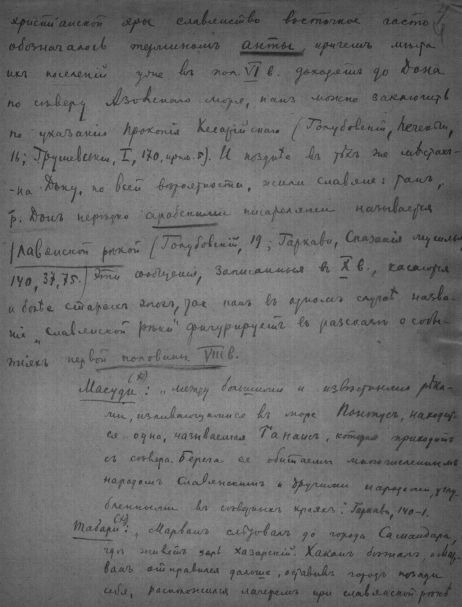 христiанской эры славянство восточное часто
обозначалось терминомъ анты, причемъ
ихъ поселенiй уже въ пол. VI в. доходятъ до Дона
по сѣверу Азовскаго моря, какъ можно заключить
по указанiю Прокопiя Кесарiйскаго (Голубовскiй, Печенѣги,
16; Грушевський, I, 170, прим. 5). И позднѣе въ тѣхъ же мѣстахъ
на Дону, по всей вѣроятности, жили славяне: тамъ,
р. Донъ нерѣдко арабскими писателями называется
славянской рѣкой (Голубовскiй, 19; Гаркави, Сказанiя мусульм.
140, 37, 75.) Эти сообщенiя, записанныя въ X в., касаются
и болѣе старыхъ эпохъ, какъ въ одномъ случаѣ назва-
нiе "славянской рѣки" фигурируетъ въ разсказѣ о собы-
тiяхъ первой половины VIII в.
Масуди: "между большими и извѣстными рѣка-
ми, изливающимися въ море Понтусъ, находит-
ся одна, называемая Танаис, которая приходитъ
съ сѣвера. Берега ее обитаемы многочисленнымъ
народомъ Славянскимъ и другими народами, углу-
бленными въ сѣверныхъ краяхъ": Гаркави, 140-1.
Табари: "Марванъ слѣдовалъ до города Самандара,
гдѣ живетъ царь хазарскiй. Хаканъ бѣжалъ, а Мар-
ванъ отправился дальше, оставивъ городъ позади
себя, расположился лагеремъ при славянской рѣкѣ